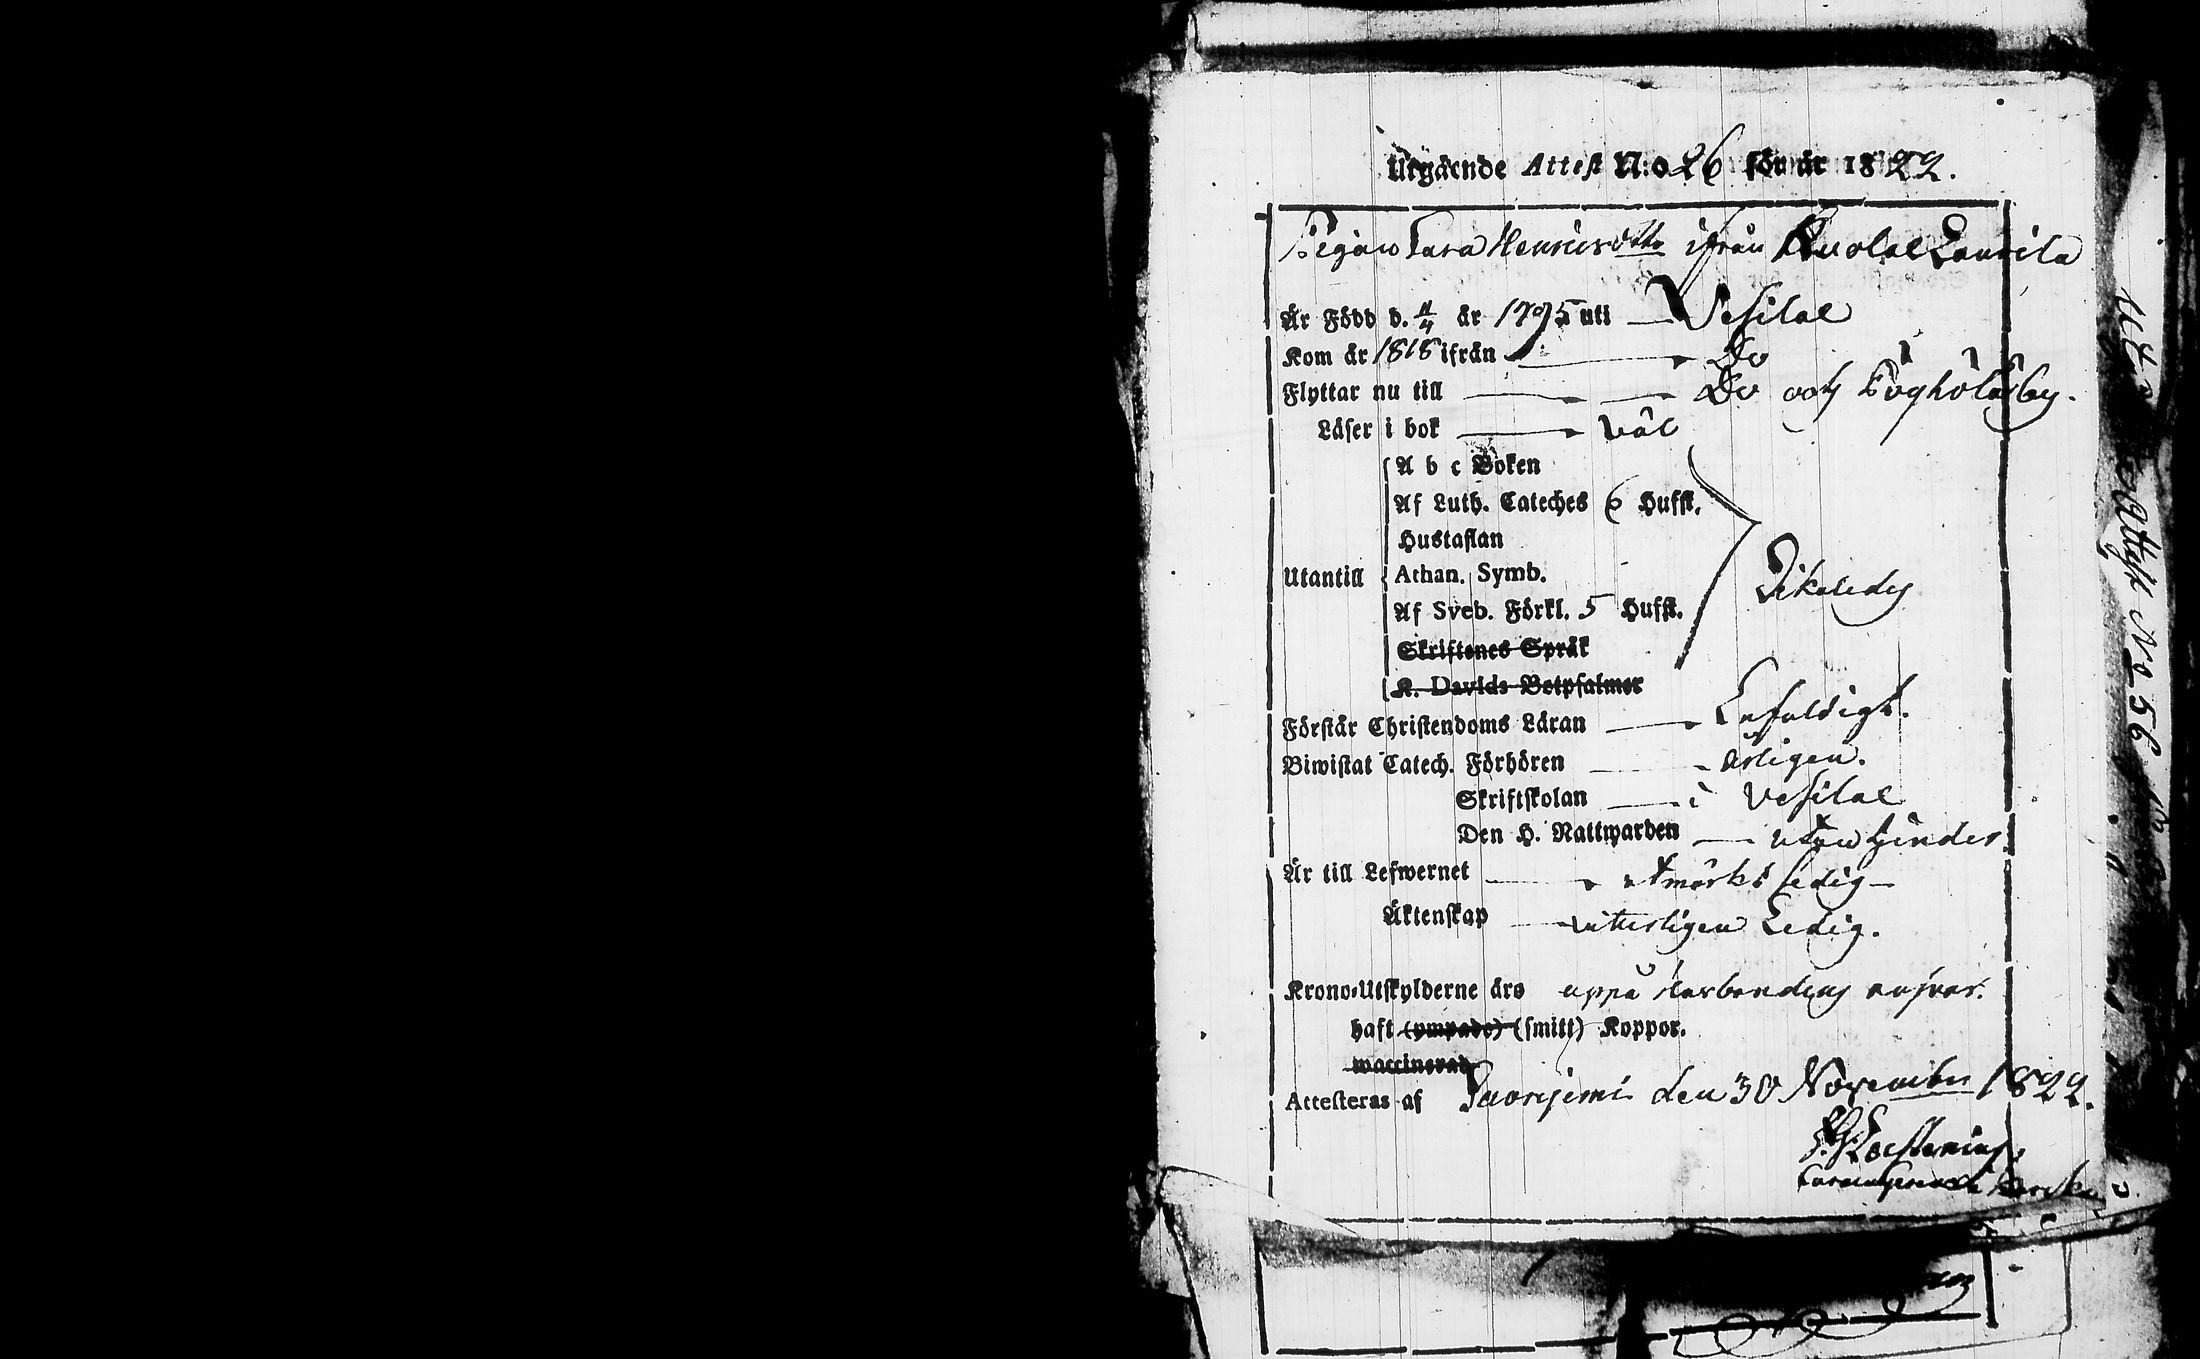 Utgående Attest N:o 26 för år 1822.
Pigan Sara Henricsdtr ifrån Kuolal Laurila
Är Född d. 4/4 år 1795 uti — Vesilax
Kom år 1818 ifrån — Do
Flyttar nu till — Do och by.
Läser i bok — väl
A b c Boken
Af Luth. Cateches 6 Hufst.
Hustaflan
Utantill Athan. Symb.
Af Sveb. Förkl. 5 Hufst.
Likaledes
Skriftenes Språk
K. Davids Botpsalmer
Förstår Christendoms Läran — Enfaldigt.
Biwistat Catech. Förhören — årligen.
Skriftskolan — i Vesilax
Den H. Nattwarden — utan hinder.
Är till Lefwernet — utmärkt sedig —
Äktenskap — vitterligen Ledig.
Krono-Utskylderne äro uppå Husbondens ansvar.
haft (ympade) (smitt) Koppor.
waccinerad
Attesteras af den 30 November 1822.
Attest No 56